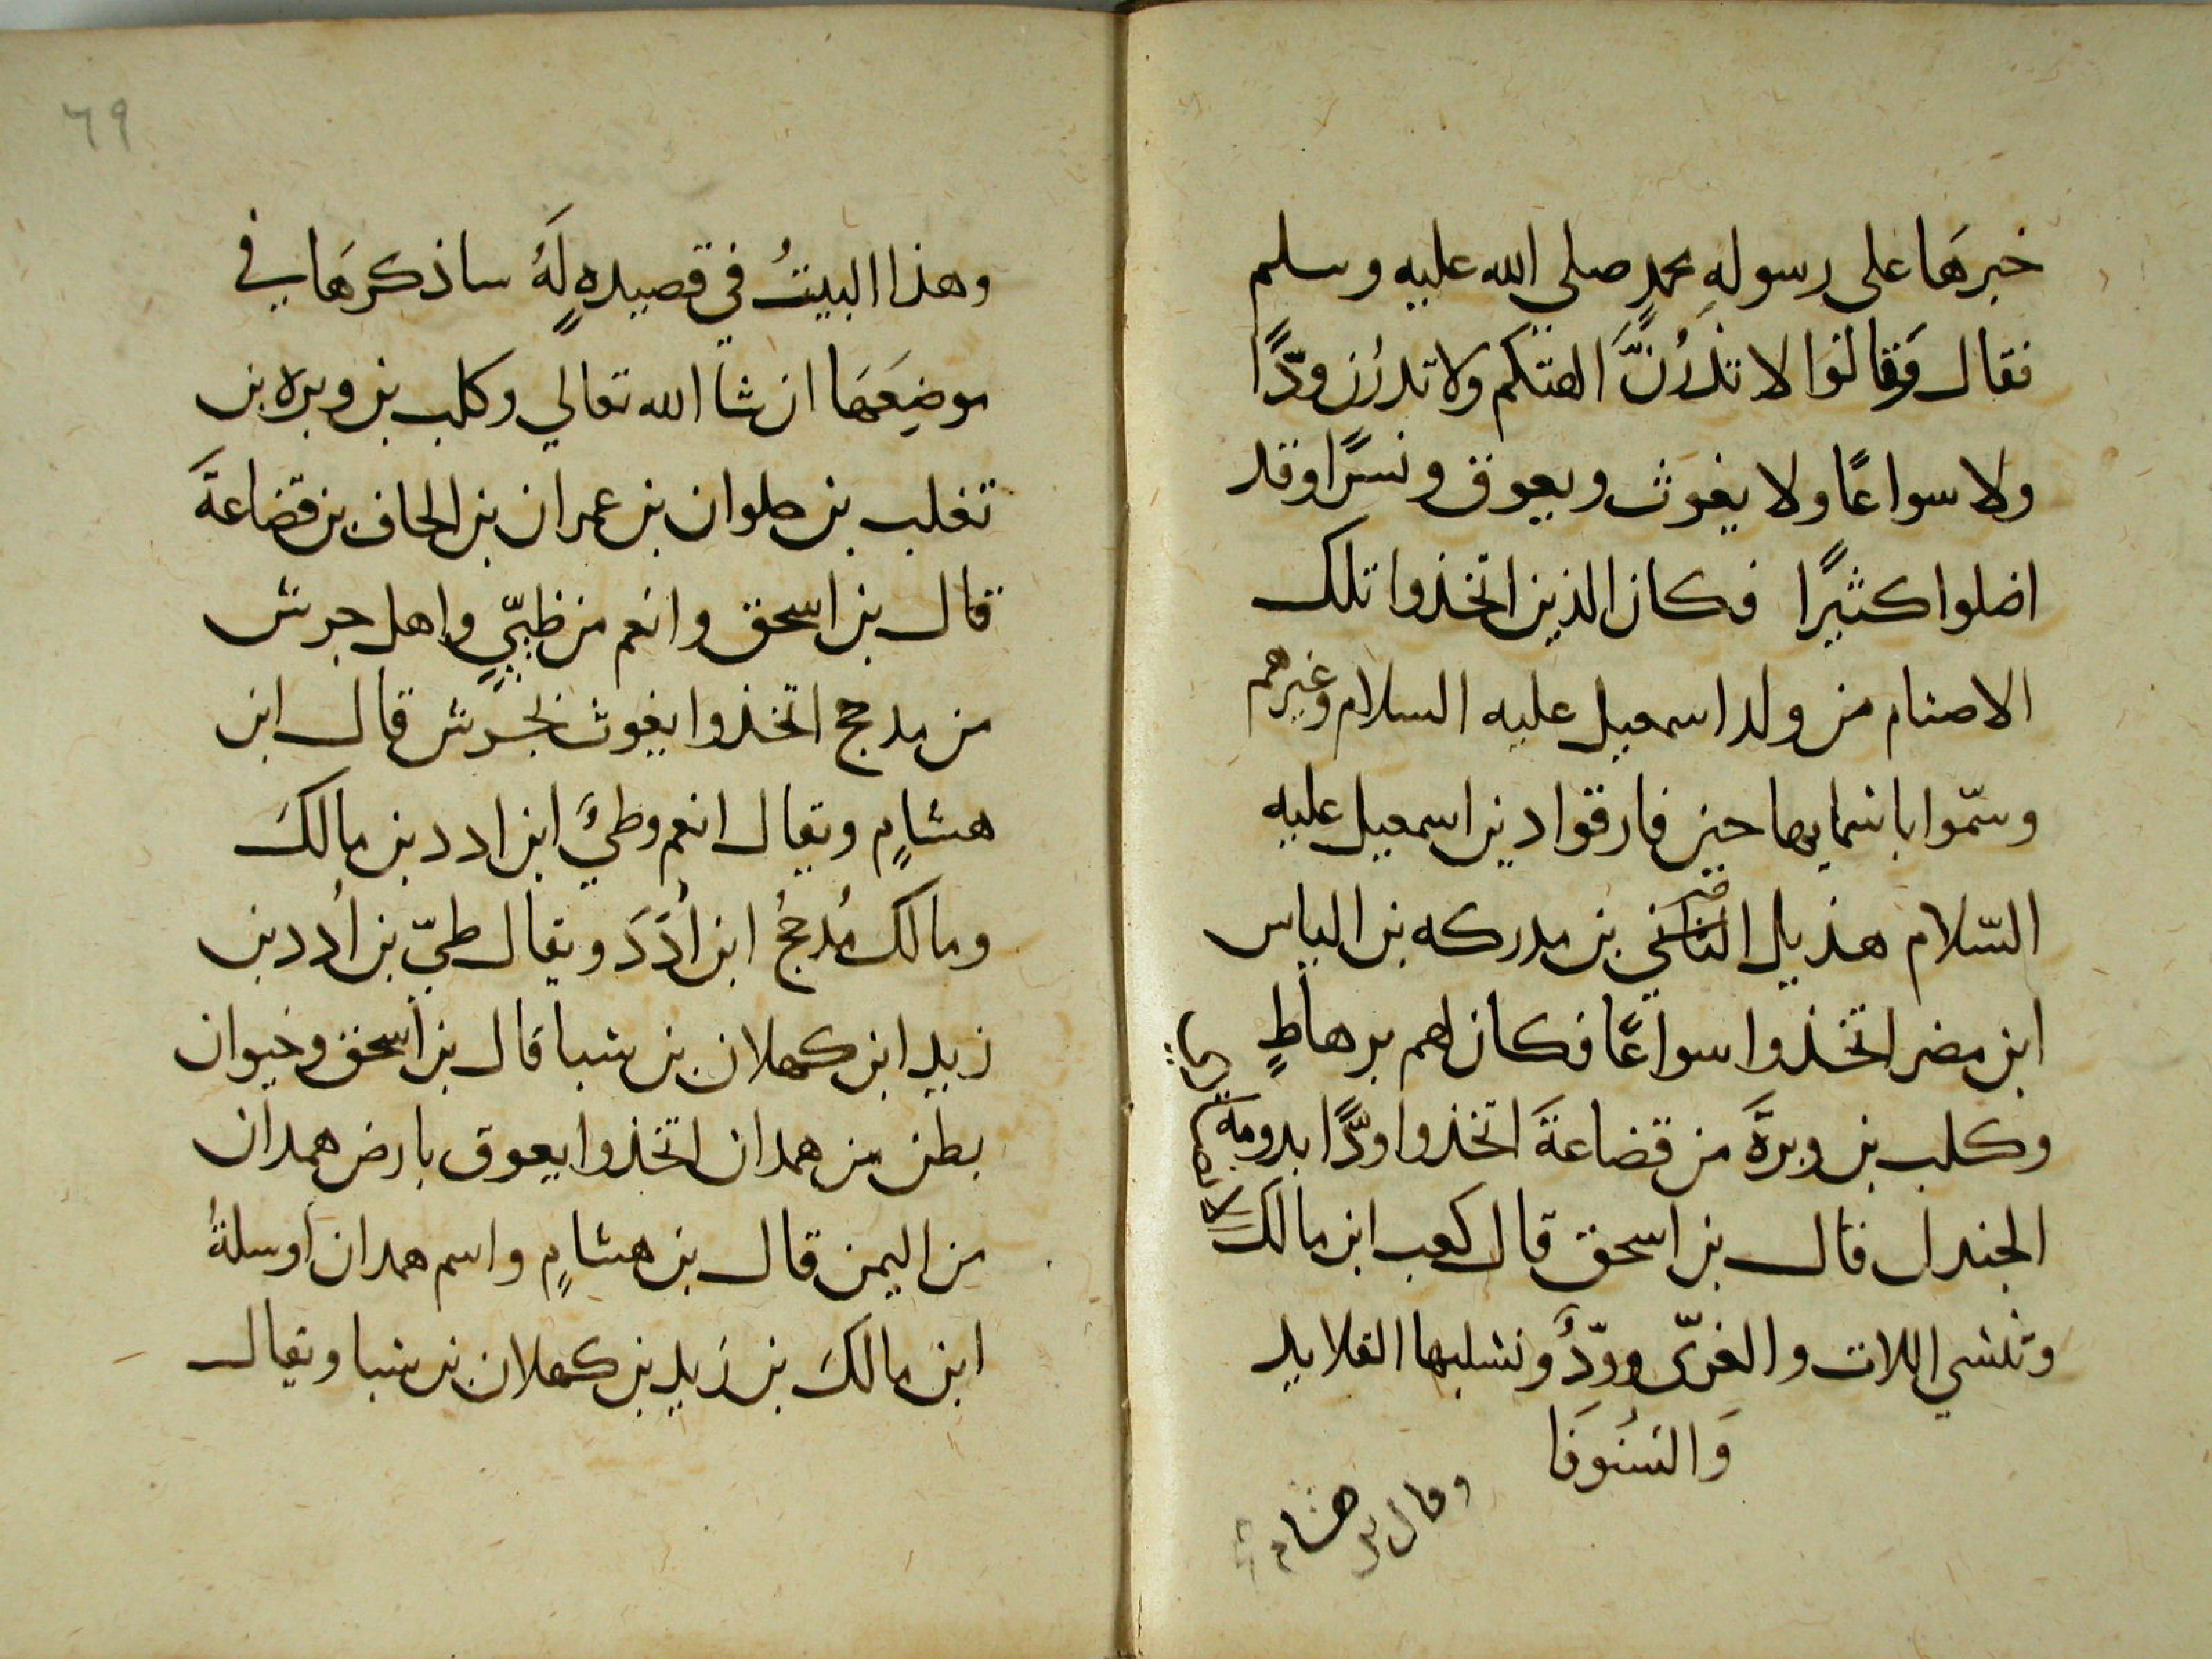 خبرهَا على رسولهِ محمدٍ صلى الله عليه وسلم
فقال وَقالوا لا تذرُنَّ الهتكم ولا تذرُن ودًّا
ولا سواعًا ولا يغوَث ويعوق ونسرًا وقد
اضلوا كثيرًا فكان الذين اتخذوا تلك
الاصنام من ولد اسمعيل عليه السلام وغيرهم
وسمّوا باسمايها حين فارقوا دين اسمعيل عليه
السّلام هذيل بن مدركه بن الياس
ابن مضر اتخذوا سواعًا فكان لهم برهاطٍ
وكلب بن وبرةَ من قضاعةَ اتخذوا ودًّا بدومة
الجندل قال بن اسحق قال كعب ابن مالك
الانصاري
وننسي اللات والعزّى وودّ ونسلبها القلايد
وَالسُنوفَا
وقال بن هشام
٦٩
وهذا البيتُ في قصيدهٍ لَهُ ساذكرهَا في
موضِعَهَا ان شا الله تعالي وكلب بن وبره بن
تغلب بن حلوان بن عمران بن الحاف بن قضاعةَ
قال بن اسحق وانعم من طيّيٍ واهل جرش
من مدحج اتخذوا يغوث بجُرش قال ابن
هشامٍ ويقال انعم وطيَّ ابن ادد بن مالكَ
ومالك مُدحجُ ابن اُدَدَ ويقال طيّ بن اُدد بن
زيد ابن كهلان بن سبا قال بن اسحق وخيوان
بطن من همدان اتخذوا يعوق بارض همدان
من اليمن قال بن هشامٍ واسم همدان اوسلةُ
ابن مالكَ بن زَيد بن كهلان بن سبا ويقال